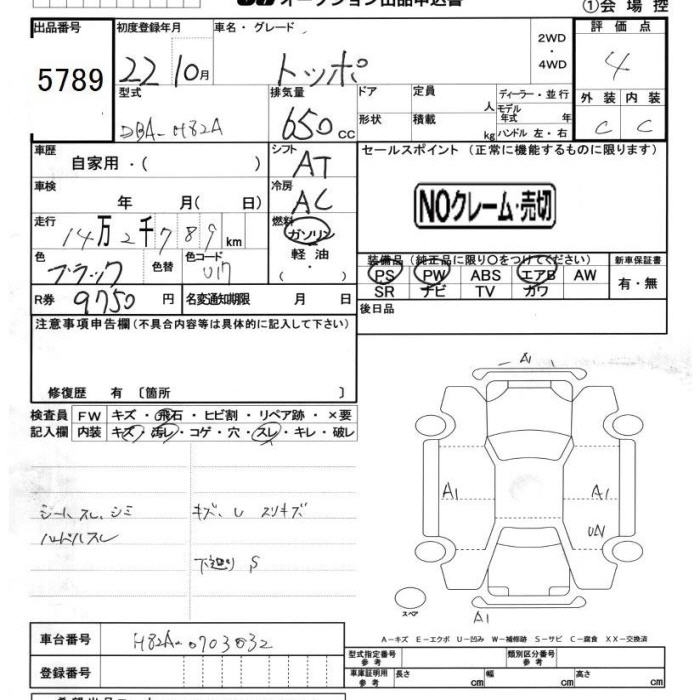 オークション出品申込書
①会場控
出品番号
5789
初度登録年月
22 10月
車名・グレード
トッポ
2WD
・
4WD
評価点
4
型式
DBA-H82A
排気量
650 cc
ドア
定員
人
ディーラー・並行
モデル
年式 年
形状
積載
kg
ハンドル 左・右
外装 内装
C C
車歴
自家用・( )
シフト
AT
セールスポイント (正常に機能するものに限ります)
NOクレーム・売切
車検
年 月( 日)
冷房
AC
走行
14万2千789km
燃料
ガソリン
・
軽油
・
色
ブラック
色替
色コード
U17
( )
装備品 (純正品に限り○をつけてください)
新車保証書
PS PW ABS エアB AW
SR ナビ TV カワ
有・無
R券 9750 円
名変通知期限 月 日
後日品
注意事項申告欄 (不具合内容等は具体的に記入して下さい)
修復歴 有 〔箇所 〕
検査員
記入欄
FW キズ・飛石・ヒビ割・リペア跡・×要
内装 キズ・汚レ・コゲ・穴・スレ・キレ・破レ
シートスレ、シミ
ハンドルスレ
キズ、U スリキズ
下廻り S
A1
A1
A1
A1
スペア
A-キズ E-エクボ U-凹み W-補修跡 S-サビ C-腐食 XX-交換済
車台番号
H82A-0703832
登録番号
型式指定番号
参考
類別区分番号
参考
車庫証明用
参考
長さ cm
幅 cm
高さ cm